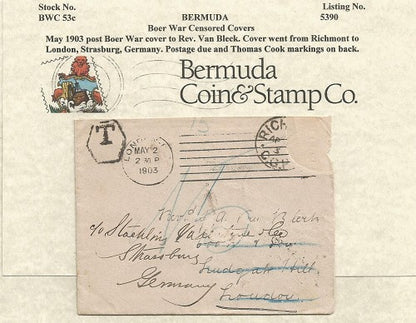 Stock No. BERMUDA Listing No.
BWC 53c 5390
Boer War Censored Covers
May 1903 post Boer War cover to Rev. Van Bleck. Cover went from Richmont to
London, Strasburg, Germany. Postage due and Thomas Cook markings on back.
Bermuda
Coin & Stamp Co.
T
LON
MAY 2
2 30 P
1903
RICH
AP
3
15
c/o
Strassburg
Ludgate Hill
Germany London